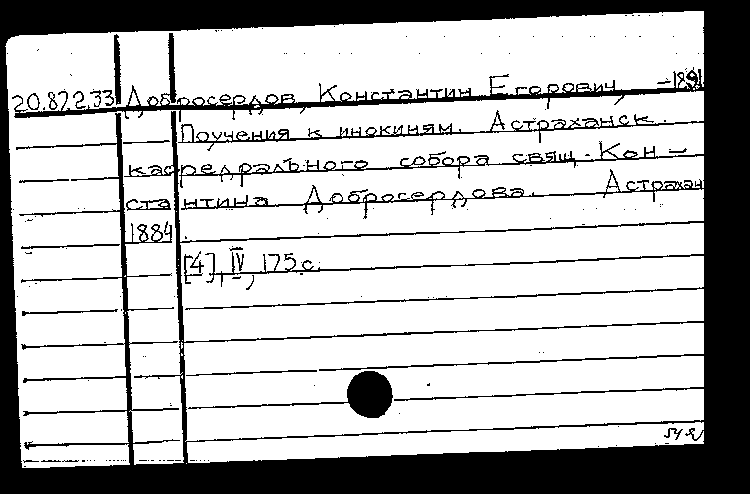 20.87.2.33 Добросердов, Константин Егорович, -1891
Поучения к инокиням. Астраханск.
кафедрального собора свящ. Кон-
стантина Добросердова. Астрахан
1884.
[4], IV, 175 с.